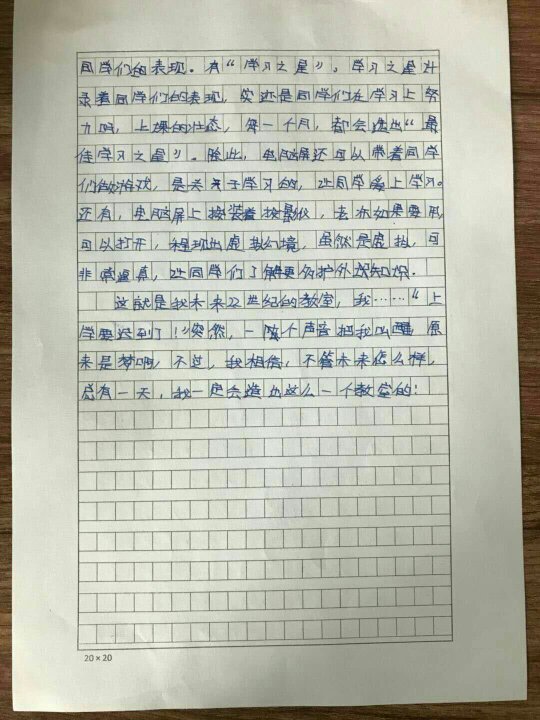 同学们的表现。有“学习之星”。学习之星对
录着同学们的表现,实还是同学们在学习上努
力吗,上课的状态,第一个月,都会选出“最
佳学习之星”。除此,电脑屏还可以带着同学
们做游戏,是关于学习的,让同学爱上学习。
还有,电脑屏上按装着投影仪,老师如果要用
可以打开,程现出虚拟幻境,虽然是虚拟,可
非常逼真,让同学们了解更多的户外知识.
这就是我未来22世纪的教室,我……“上
学要迟到了!”突然,一个声音把我叫醒,原
来是梦啊,不过,我相信,不管未来怎么样,
总有一天,我一定会造出这么一个教室的!
20×20